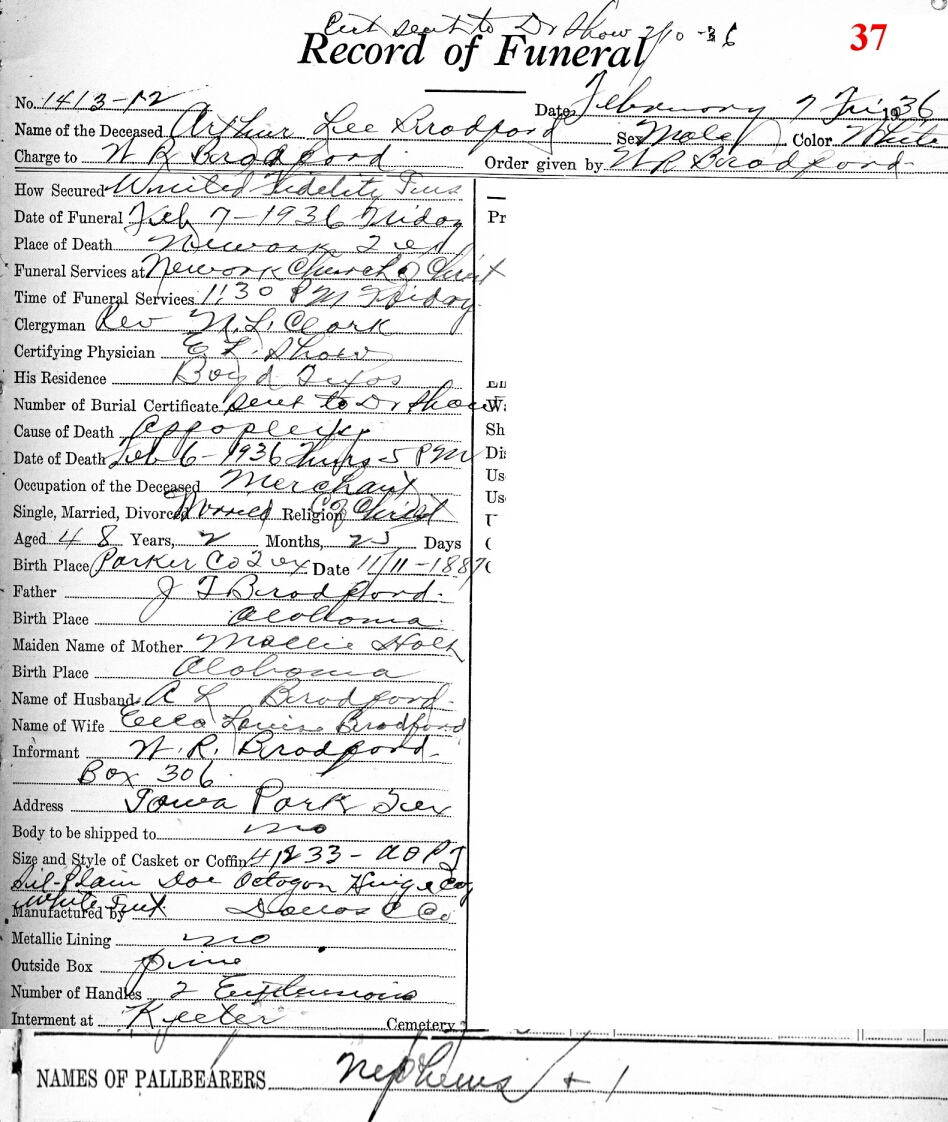 Cert sent to Dr Shaw 2/10-36
37
Record of Funeral
No. 1413-12 Date February 7 Fri 1936
Name of the Deceased Arthur Lee Bradford Sex Male Color White
Charge to W R Bradford Order given by W R Bradford
How Secured United Fidelity Ins
Date of Funeral Feb 7-1936 Friday
Pr
Place of Death Newark Tex
Funeral Services at Newark Church of Christ
Time of Funeral Services 1:30 PM Friday
Clergyman Rev N. L. Clark
Certifying Physician E L. Shaw
His Residence Boyd Texas
Number of Burial Certificate sent to Dr Shaw
Wa
Cause of Death Appoplexy
Sh
Date of Death Feb 6-1936 Thurs-5 PM
Dis
Occupation of the Deceased Merchant
Us
Us
Single, Married, Divorced Married Religion C of Christ
Aged 48 Years, 2 Months, 25 Days
Birth Place Parker Co Tex Date 11/11-1887
Father J T Bradford
Birth Place Alabama
Maiden Name of Mother Mollie Holt
Birth Place Alabama
Name of Husband A L Bradford
Name of Wife Ella Louise Bradford
Informant W. R. Bradford
Box 306
Address Iowa Park Tex
Body to be shipped to no
Size and Style of Casket or Coffin 41233-
Sil-Plain Doe Octagon Hinge Cap
White Int
Manufactured by Dallas C Co
Metallic Lining no
Outside Box pine
Number of Handles 2 Extensions
Interment at Keeter Cemetery
NAMES OF PALLBEARERS Nephews + 1